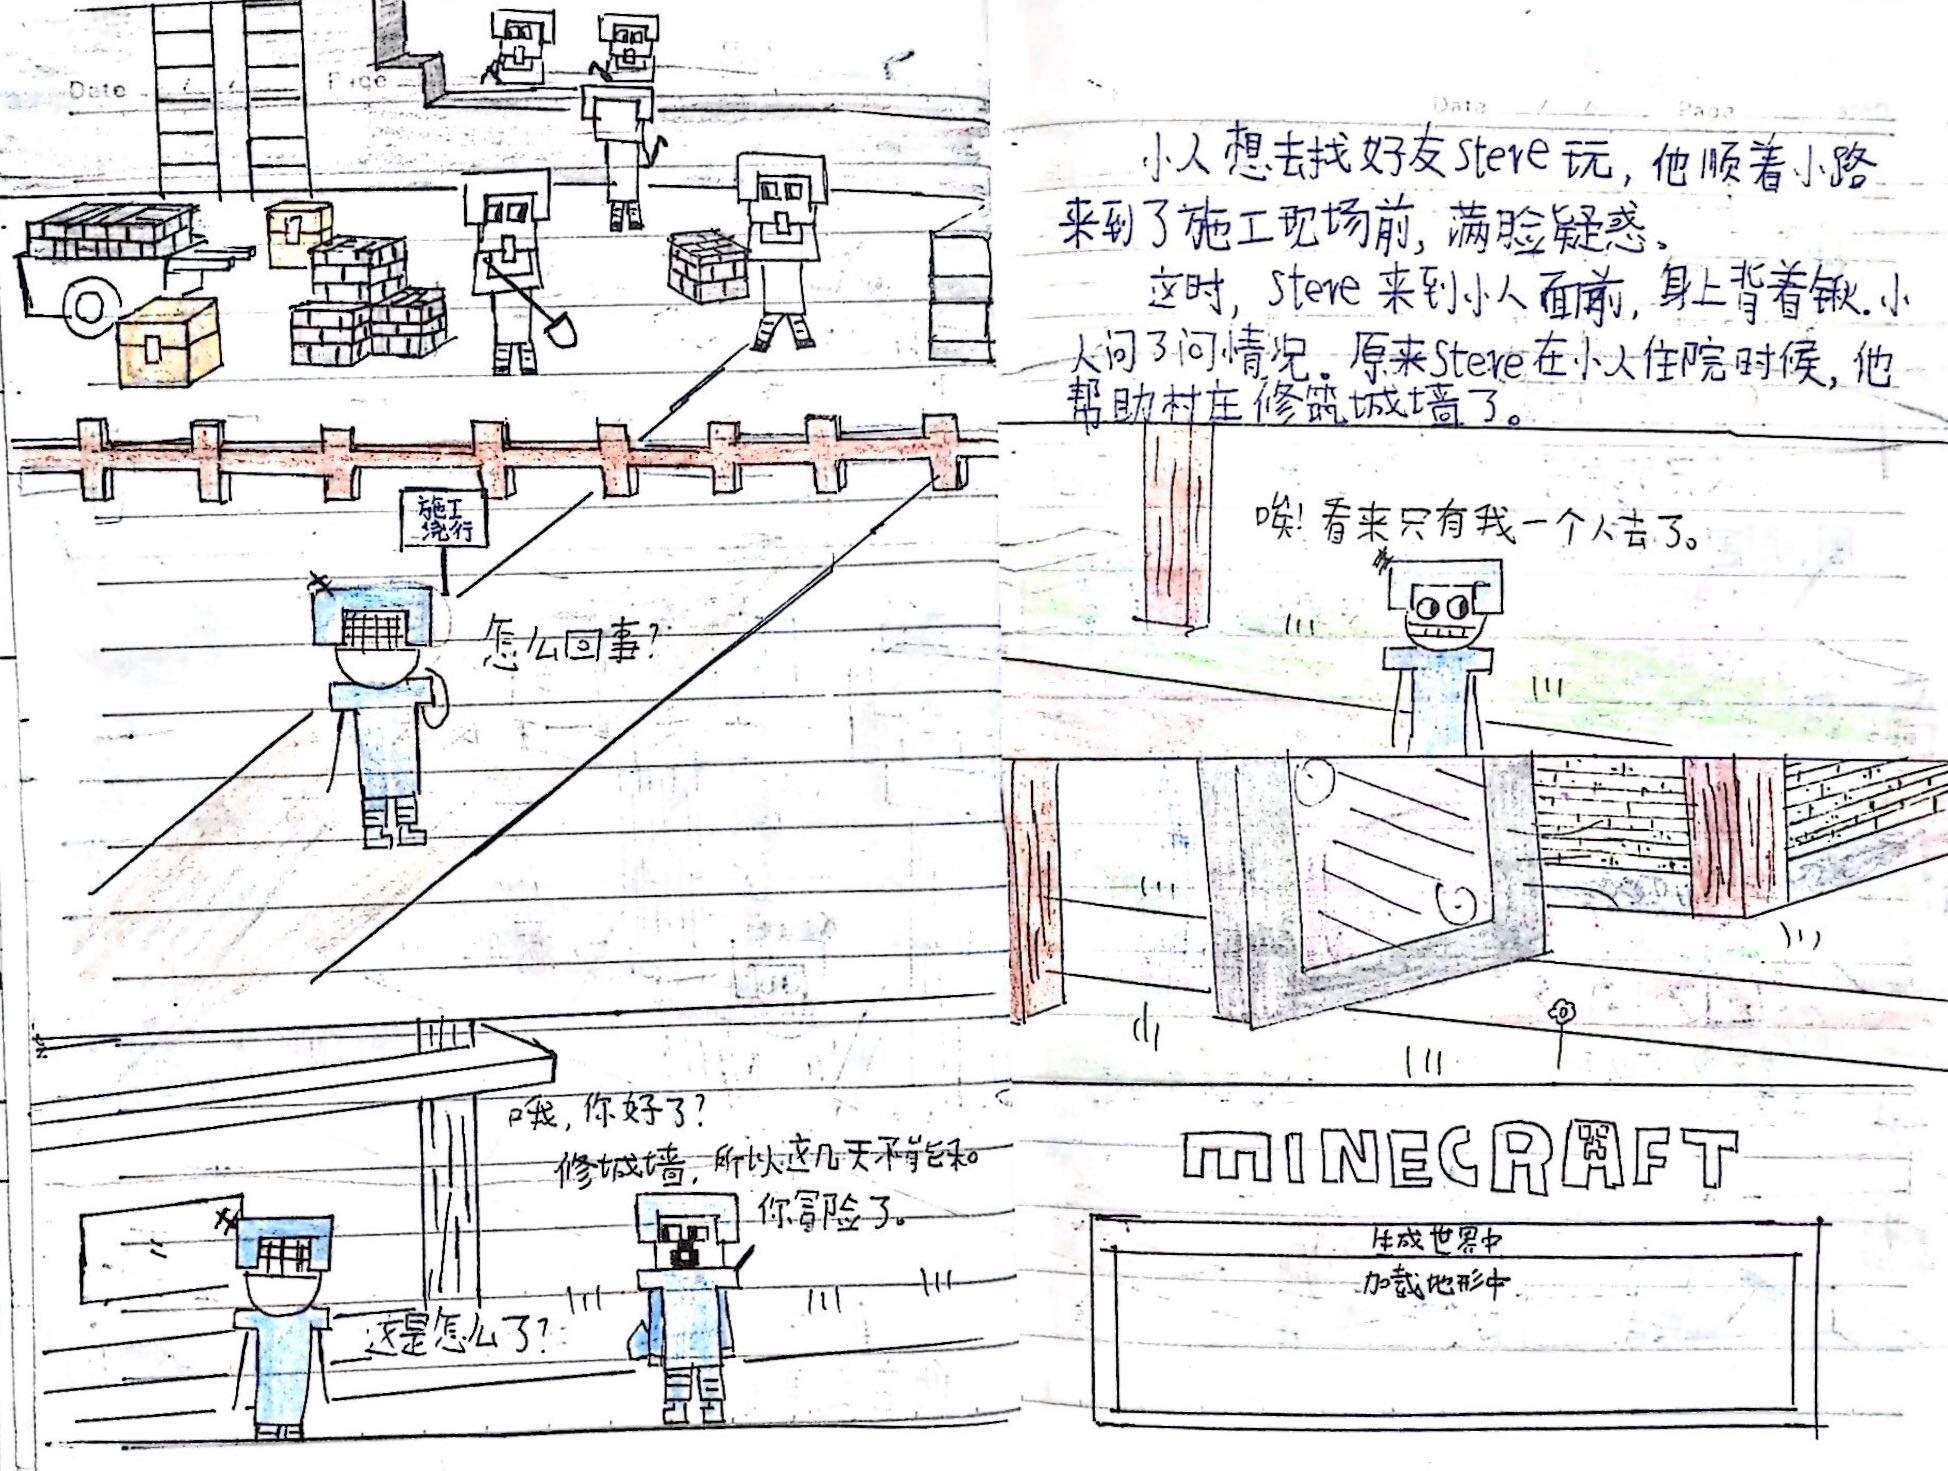 Date / / Page
施工
绕行
怎么回事?
哦,你好了?
修城墙,所以这几天不能和
你冒险了。
这是怎么了?
Date / / Page
小人想去找好友Steve玩,他顺着小路
来到了施工现场前,满脸疑惑。
这时,Steve来到小人面前,身上背着锹.小
人问了问情况。原来Steve在小人住院时候,他
帮助村庄修筑城墙了。
唉!看来只有我一个人去了。
MINECRAFT
生成世界中
加载地形中